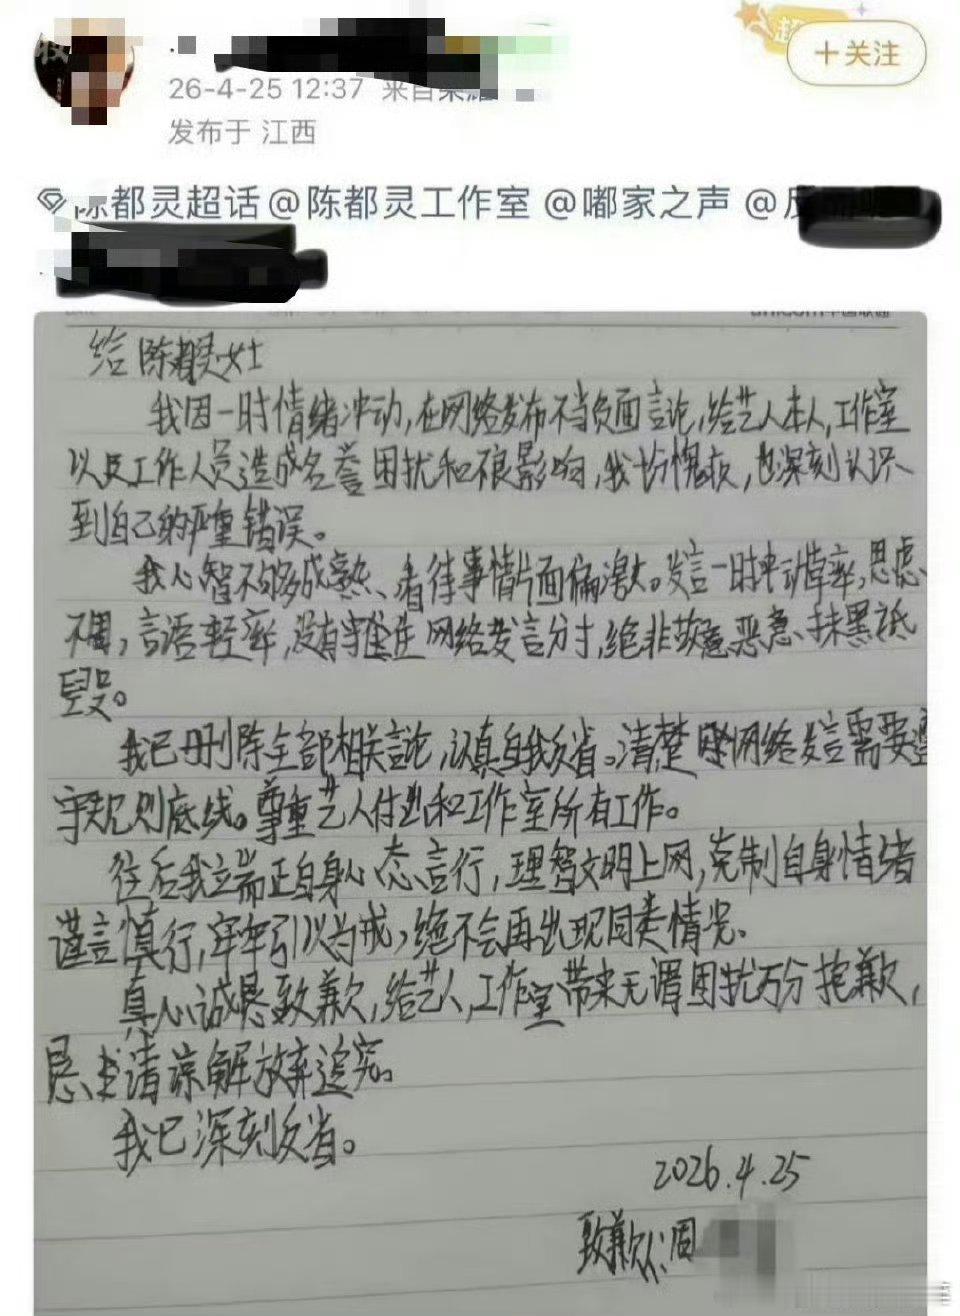 超
26-4-25 12:37 来自荣耀
十关注
发布于 江西
陈都灵超话@陈都灵工作室 @嘟家之声 @
给陈都灵女士
我因一时情绪冲动,在网络发布不当负面言论,给艺人本人,工作室
以及工作人员造成名誉困扰和不良影响,我十分愧疚,也深刻认识
到自己的严重错误。
我心智不够成熟、看待事情片面偏激。发言一时冲动草率,思虑
不周,言语轻率,没有守住网络发言分寸,绝非故意恶意、抹黑诋
毁。
我已删除全部相关言论,认真自我反省。清楚网络发言需要遵
守规则底线。尊重艺人付出和工作室所有工作。
往后我立端正自身心态言行,理智文明上网,克制自身情绪
谨言慎行,牢牢引以为戒,绝不会再出现同类情况。
真心诚恳致歉,给艺人,工作室带来无谓困扰万分抱歉,
恳请谅解放弃追究。
我已深刻反省。
2026.4.25
致歉人:周